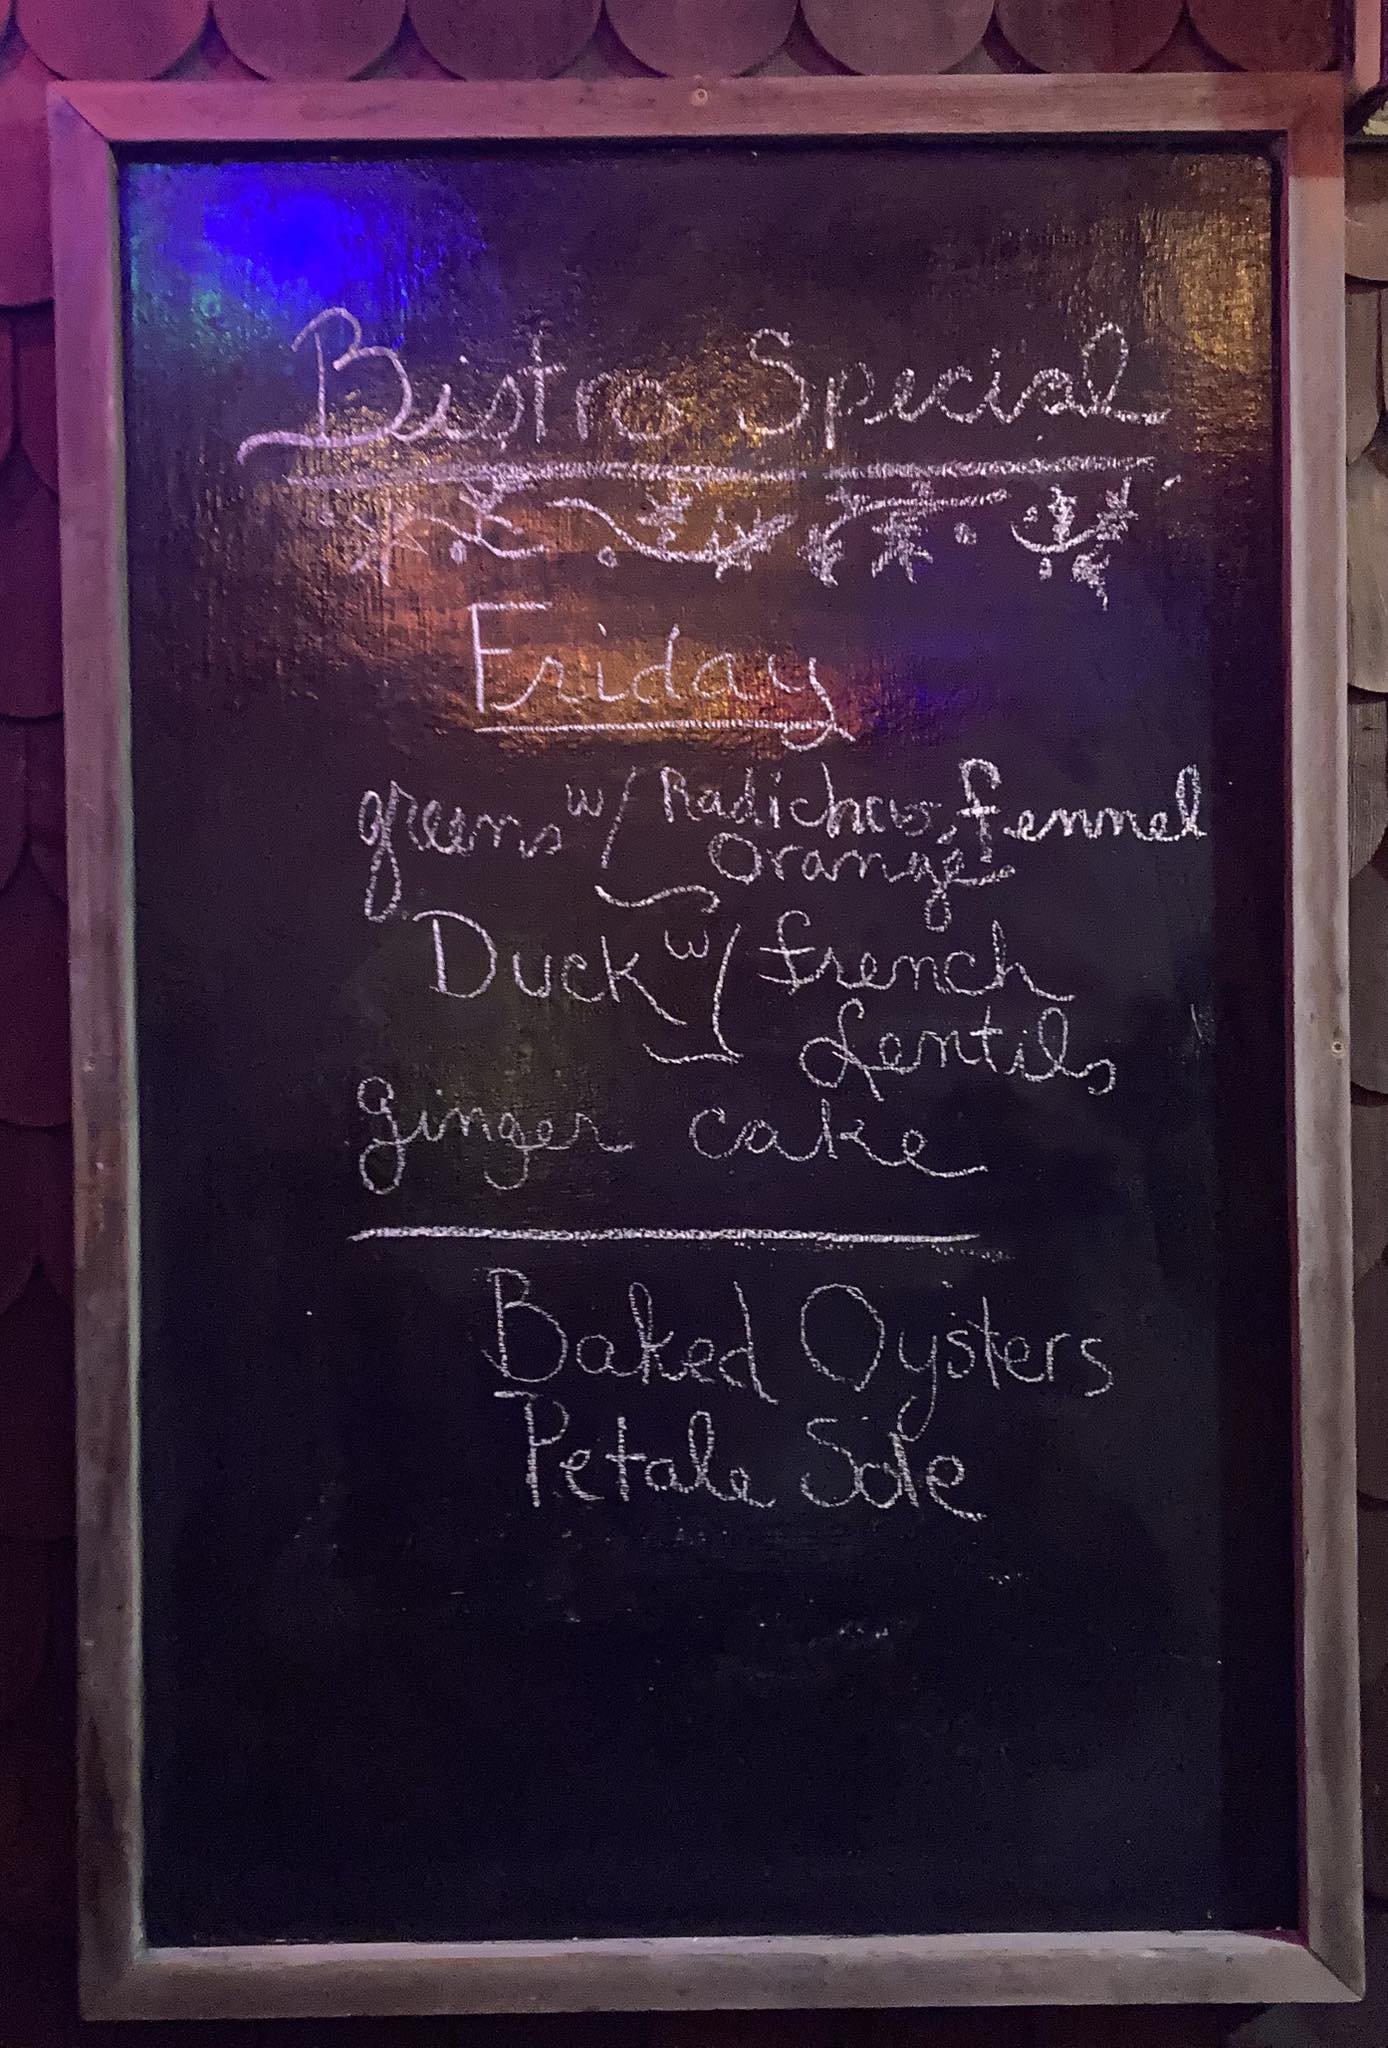 Bistro Special
Friday
greens w/ Radichio, fennel
Orange
Duck w/ french
Lentils
Ginger cake
Baked Oysters
Petale Sole